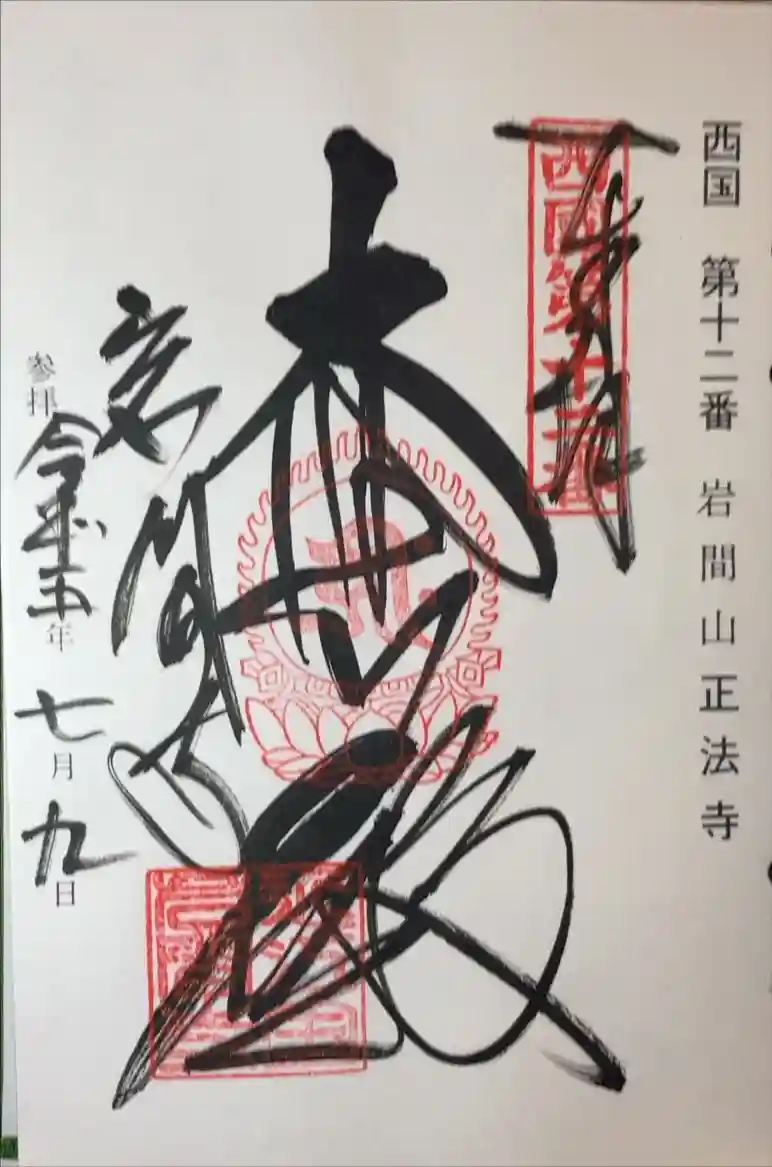 西国 第十二番 岩間山正法寺
奉拝
西國第十二番
大悲殿
岩間山
参拝 令和五年 七月 九日